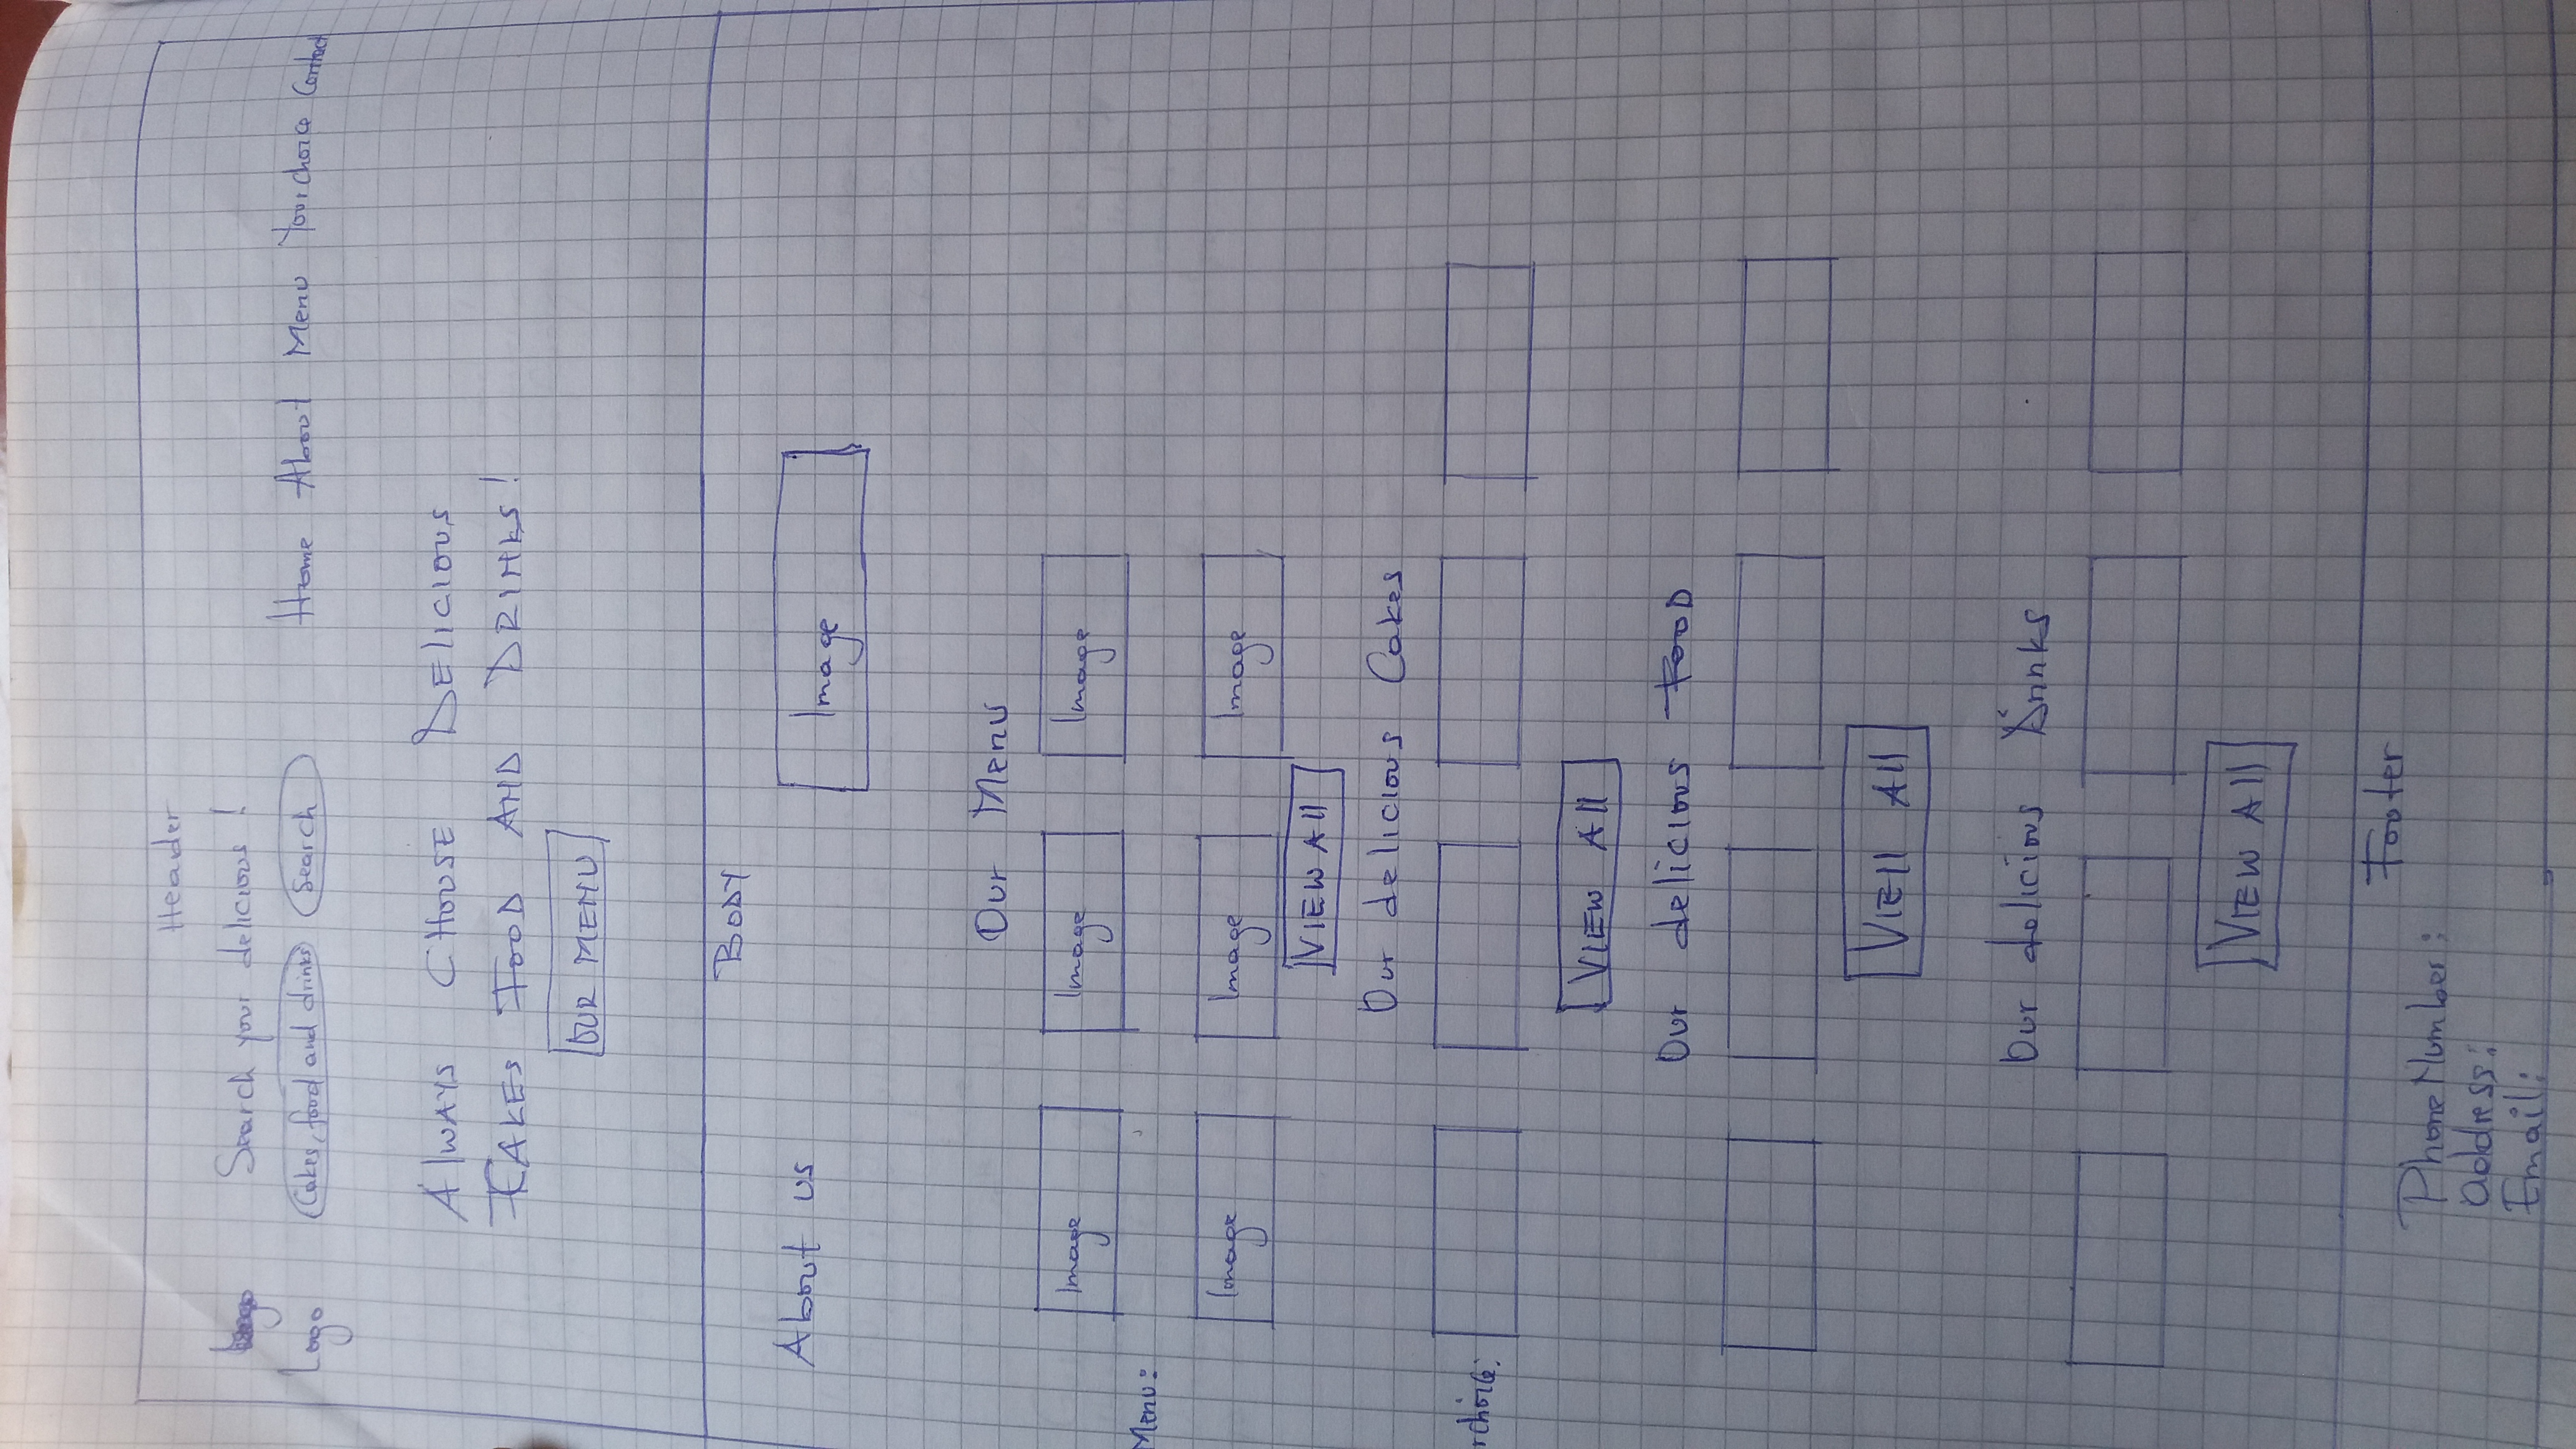 Header
Search your delicious!
Logo Cakes, food and drinks Search Home About Menu Your choice Contact
ALWAYS CHOUSE DELICIOUS
CAKES FOOD AND DRINKS!
OUR MENU
BODY
About us Image
Our Menu
Image Image Image
Menu:
Image Image Image
VIEW All
Our delicious Cakes
rchoice:
VIEW All
Our delicious FOOD
VIEW All
Our delicious Drinks
VIEW All
Footer
Phone Number:
address:
Email: